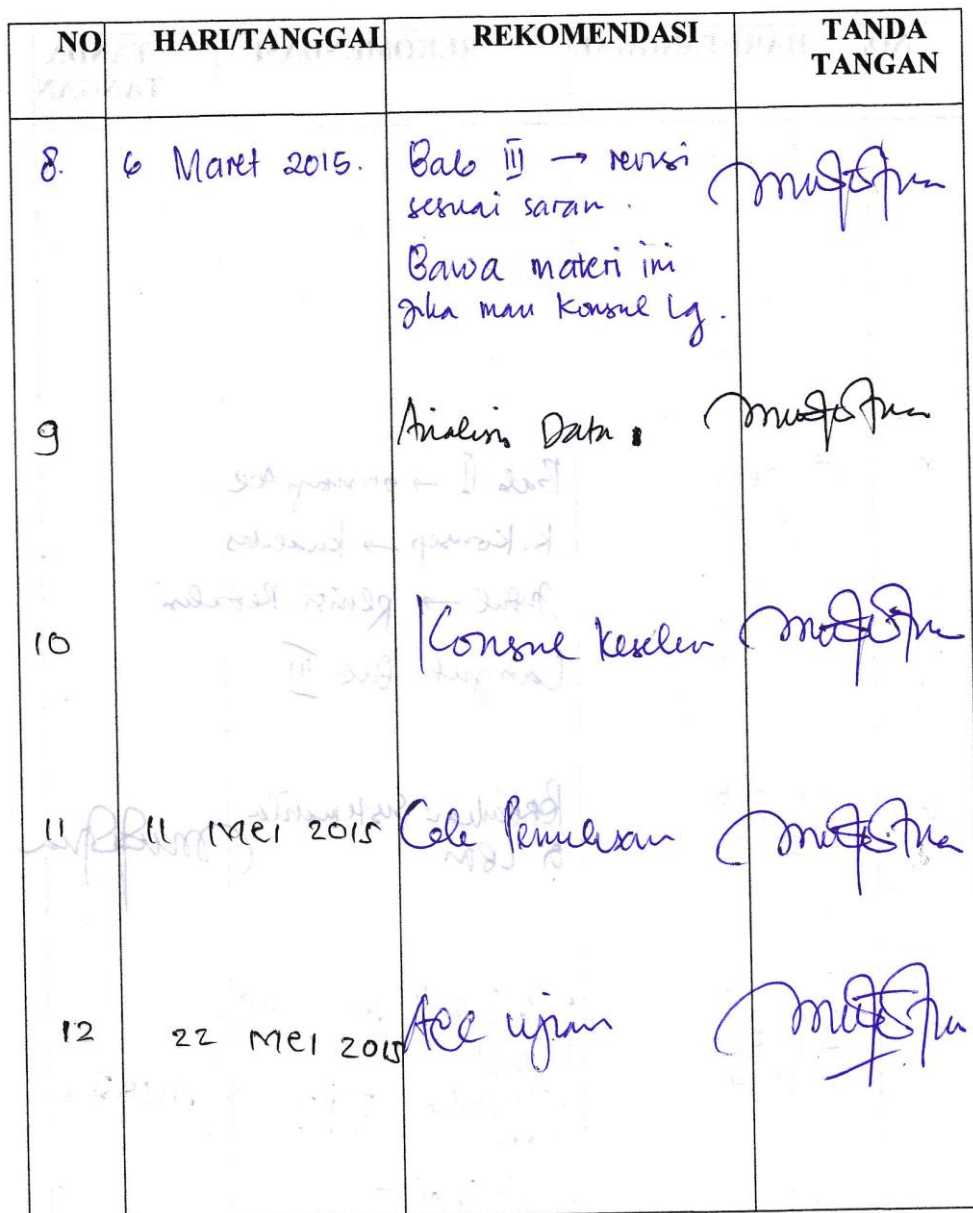 NO. HARI/TANGGAL REKOMENDASI TANDA
TANGAN
8. 6 Maret 2015. Bab III → revisi
sesuai saran.
Bawa materi ini
jika mau konsul lg.
9 Analisis Data.
10 Konsul
11 11 Mei 2015 Cek Penulisan
12 22 Mei 2015 Acc ujian